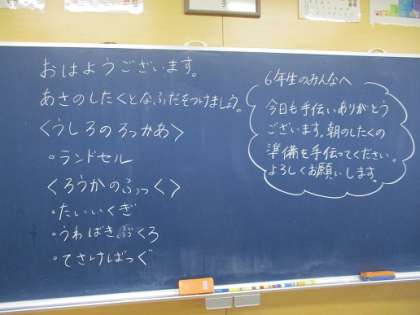 おはようございます。
あさのしたくとなふだをつけましょう。
〈うしろのろっかあ〉
・ランドセル
〈ろうかのふっく〉
・たいいくぎ
・うわばきぶくろ
・てさげばっぐ
6年生のみんなへ
今日も手伝いありがとう
ございます。朝のしたくの
準備を手伝ってください。
よろしくお願いします。